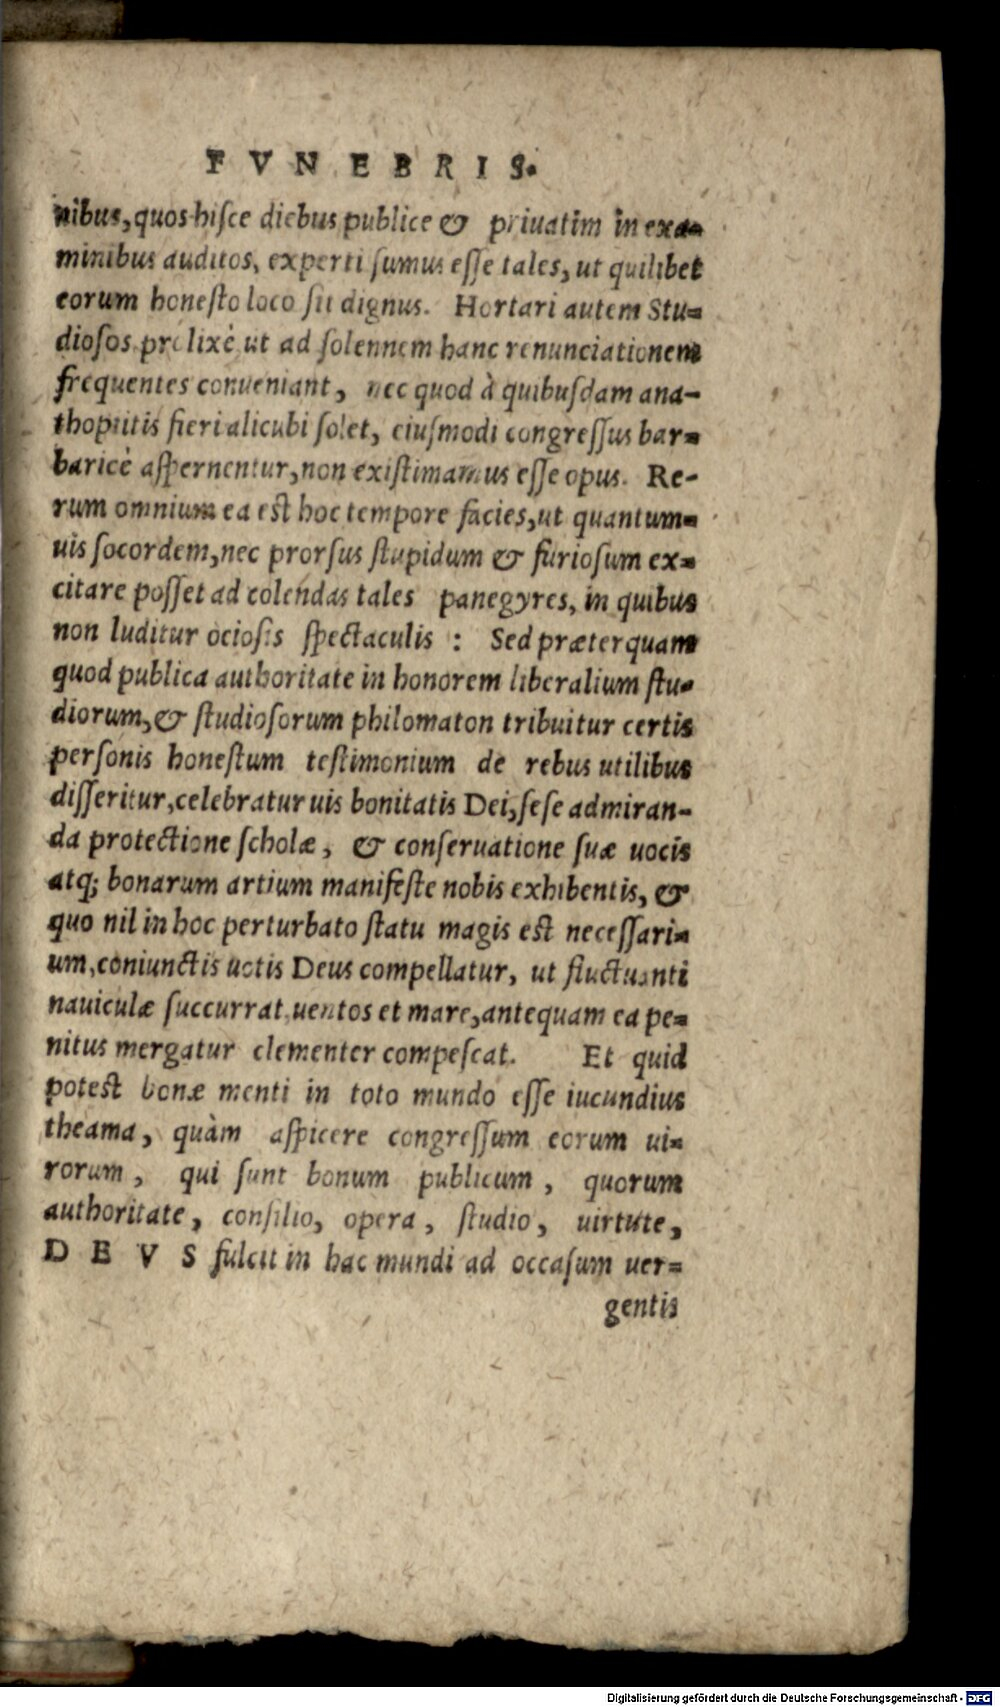 FVNEBRIS.
nibus, quos hisce diebus publice & priuatim in exa-
minibus auditos, experti sumus esse tales, ut quilibet
eorum honesto loco sit dignus. Hortari autem Stu-
diosos prolixè ut ad solennem hanc renunciationem
frequentes conueniant, nec quod à quibusdam ana-
thoputis fieri alicubi solet, eiusmodi congressus bar-
baricè aspernentur, non existimamus esse opus. Re-
rum omnium ea est hoc tempore facies, ut quantum-
uis socordem, nec prorsus stupidum & furiosum ex-
citare posset ad colendas tales panegyres, in quibus
non luditur ociosis spectaculis : Sed præterquam
quod publica authoritate in honorem liberalium stu-
diorum, & studiosorum philomaton tribuitur certis
personis honestum testimonium de rebus utilibus
disseritur, celebratur uis bonitatis Dei, sese admiran-
da protectione scholæ, & conseruatione suæ uocis
atq; bonarum artium manifeste nobis exhibentis, &
quo nil in hoc perturbato statu magis est necessari-
um, coniunctis uotis Deus compellatur, ut fluctuanti
nauiculæ succurrat, uentos et mare, antequam ea pe-
nitus mergatur clementer compescat. Et quid
potest bonæ menti in toto mundo esse iucundius
theama, quàm aspicere congressum eorum ui-
rorum, qui sunt bonum publicum, quorum
authoritate, consilio, opera, studio, uirtute,
DEVS fulcit in hac mundi ad occasum uer-
gentis
Digitalisierung gefördert durch die Deutsche Forschungsgemeinschaft - DFG